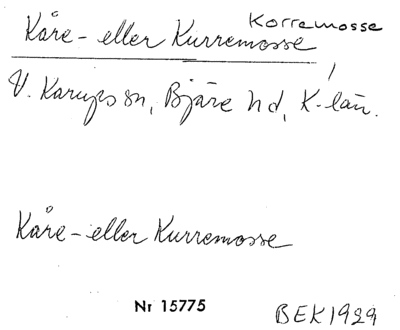 Korremosse
Kåre- eller Kurremosse
V. Karups sn, Bjäre hd, K-län.
Kåre- eller Kurremosse
Nr 15775
BEK 1929